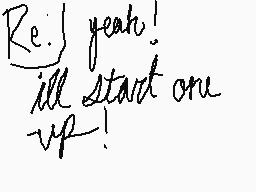 Re: yeah!
ill start one
up!